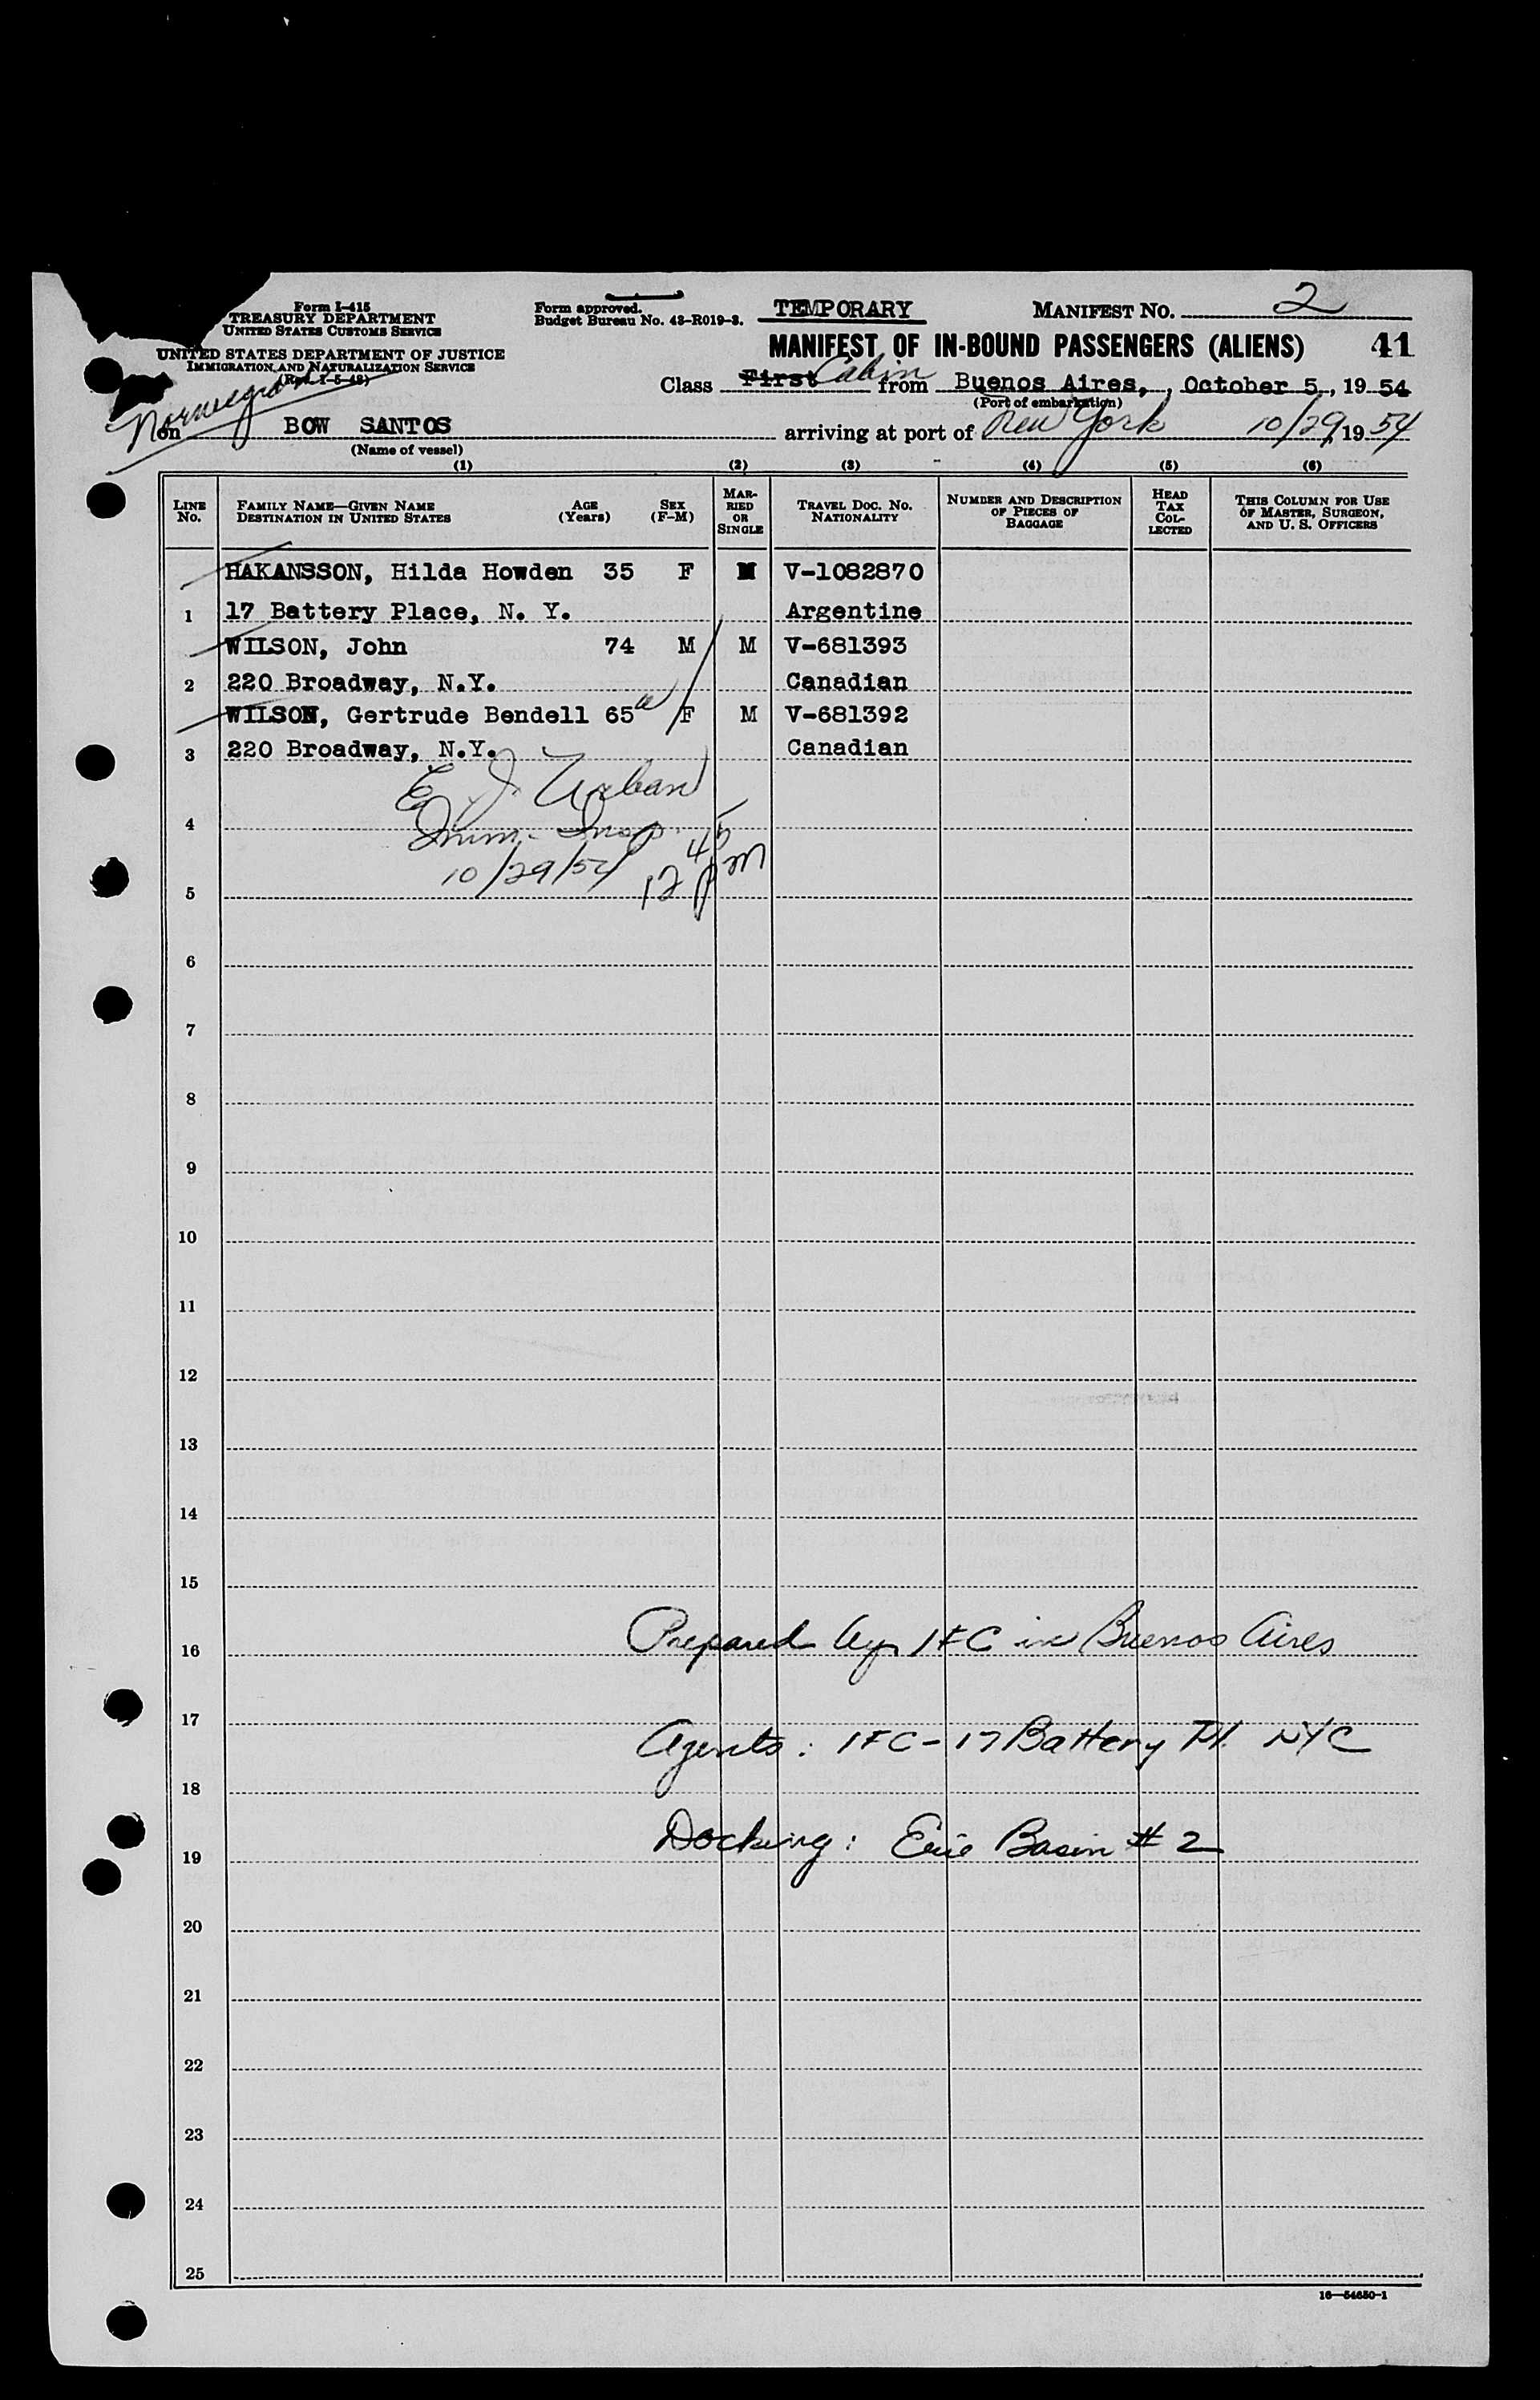 Form I-415
TREASURY DEPARTMENT
UNITED STATES CUSTOMS SERVICE
UNITED STATES DEPARTMENT OF JUSTICE
IMMIGRATION AND NATURALIZATION SERVICE
Form approved.
Budget Bureau No. 43-R019-3.
TEMPORARY
MANIFEST NO. 2
MANIFEST OF IN-BOUND PASSENGERS (ALIENS) 41
Class First Cabin from Buenos Aires, , October 5, 19 54
(Port of embarkation)
Norwegian
on BOW SANTOS arriving at port of New York 10/29, 19 54
(Name of vessel)
(1) (2) (3) (4) (5) (6)
LINE No. FAMILY NAME—GIVEN NAME DESTINATION IN UNITED STATES AGE (Years) SEX (F-M) MARRIED OR SINGLE TRAVEL DOC. NO. NATIONALITY NUMBER AND DESCRIPTION OF PIECES OF BAGGAGE HEAD TAX COLLECTED THIS COLUMN FOR USE OF MASTER, SURGEON, AND U. S. OFFICERS
HAKANSSON, Hilda Howden 35 F M V-1082870
1 17 Battery Place, N. Y. Argentine
WILSON, John 74 M M V-681393
2 220 Broadway, N.Y. Canadian
WILSON, Gertrude Bendell 65 F M V-681392
3 220 Broadway, N.Y. Canadian
E. J. Urban
4 Imm. Insp.
10/29/54 12 45 pm
5
6
7
8
9
10
11
12
13
14
15
16 Prepared by IFC in Buenos Aires
17
Agents: IFC - 17 Battery Pl. NYC
18
19 Docking: Erie Basin # 2
20
21
22
23
24
25
16—54650-1